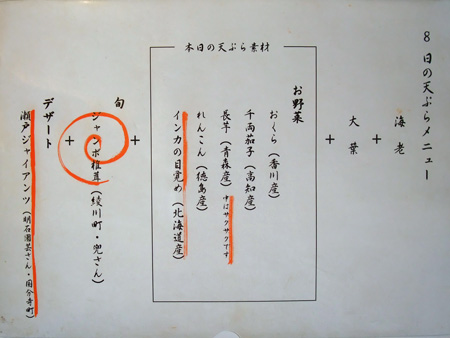 8日の天ぷらメニュー
海老
+
大葉
+
本日の天ぷら素材
お野菜
おくら(香川産)
千両茄子(高知産)
長芋(青森産)中はサクサクです
れんこん(徳島産)
インカの目覚め(北海道産)
+
旬
ジャンボ椎茸(綾川町・兜さん)
+
デザート
瀬戸ジャイアンツ(明石瀬芸さん・国分寺町)